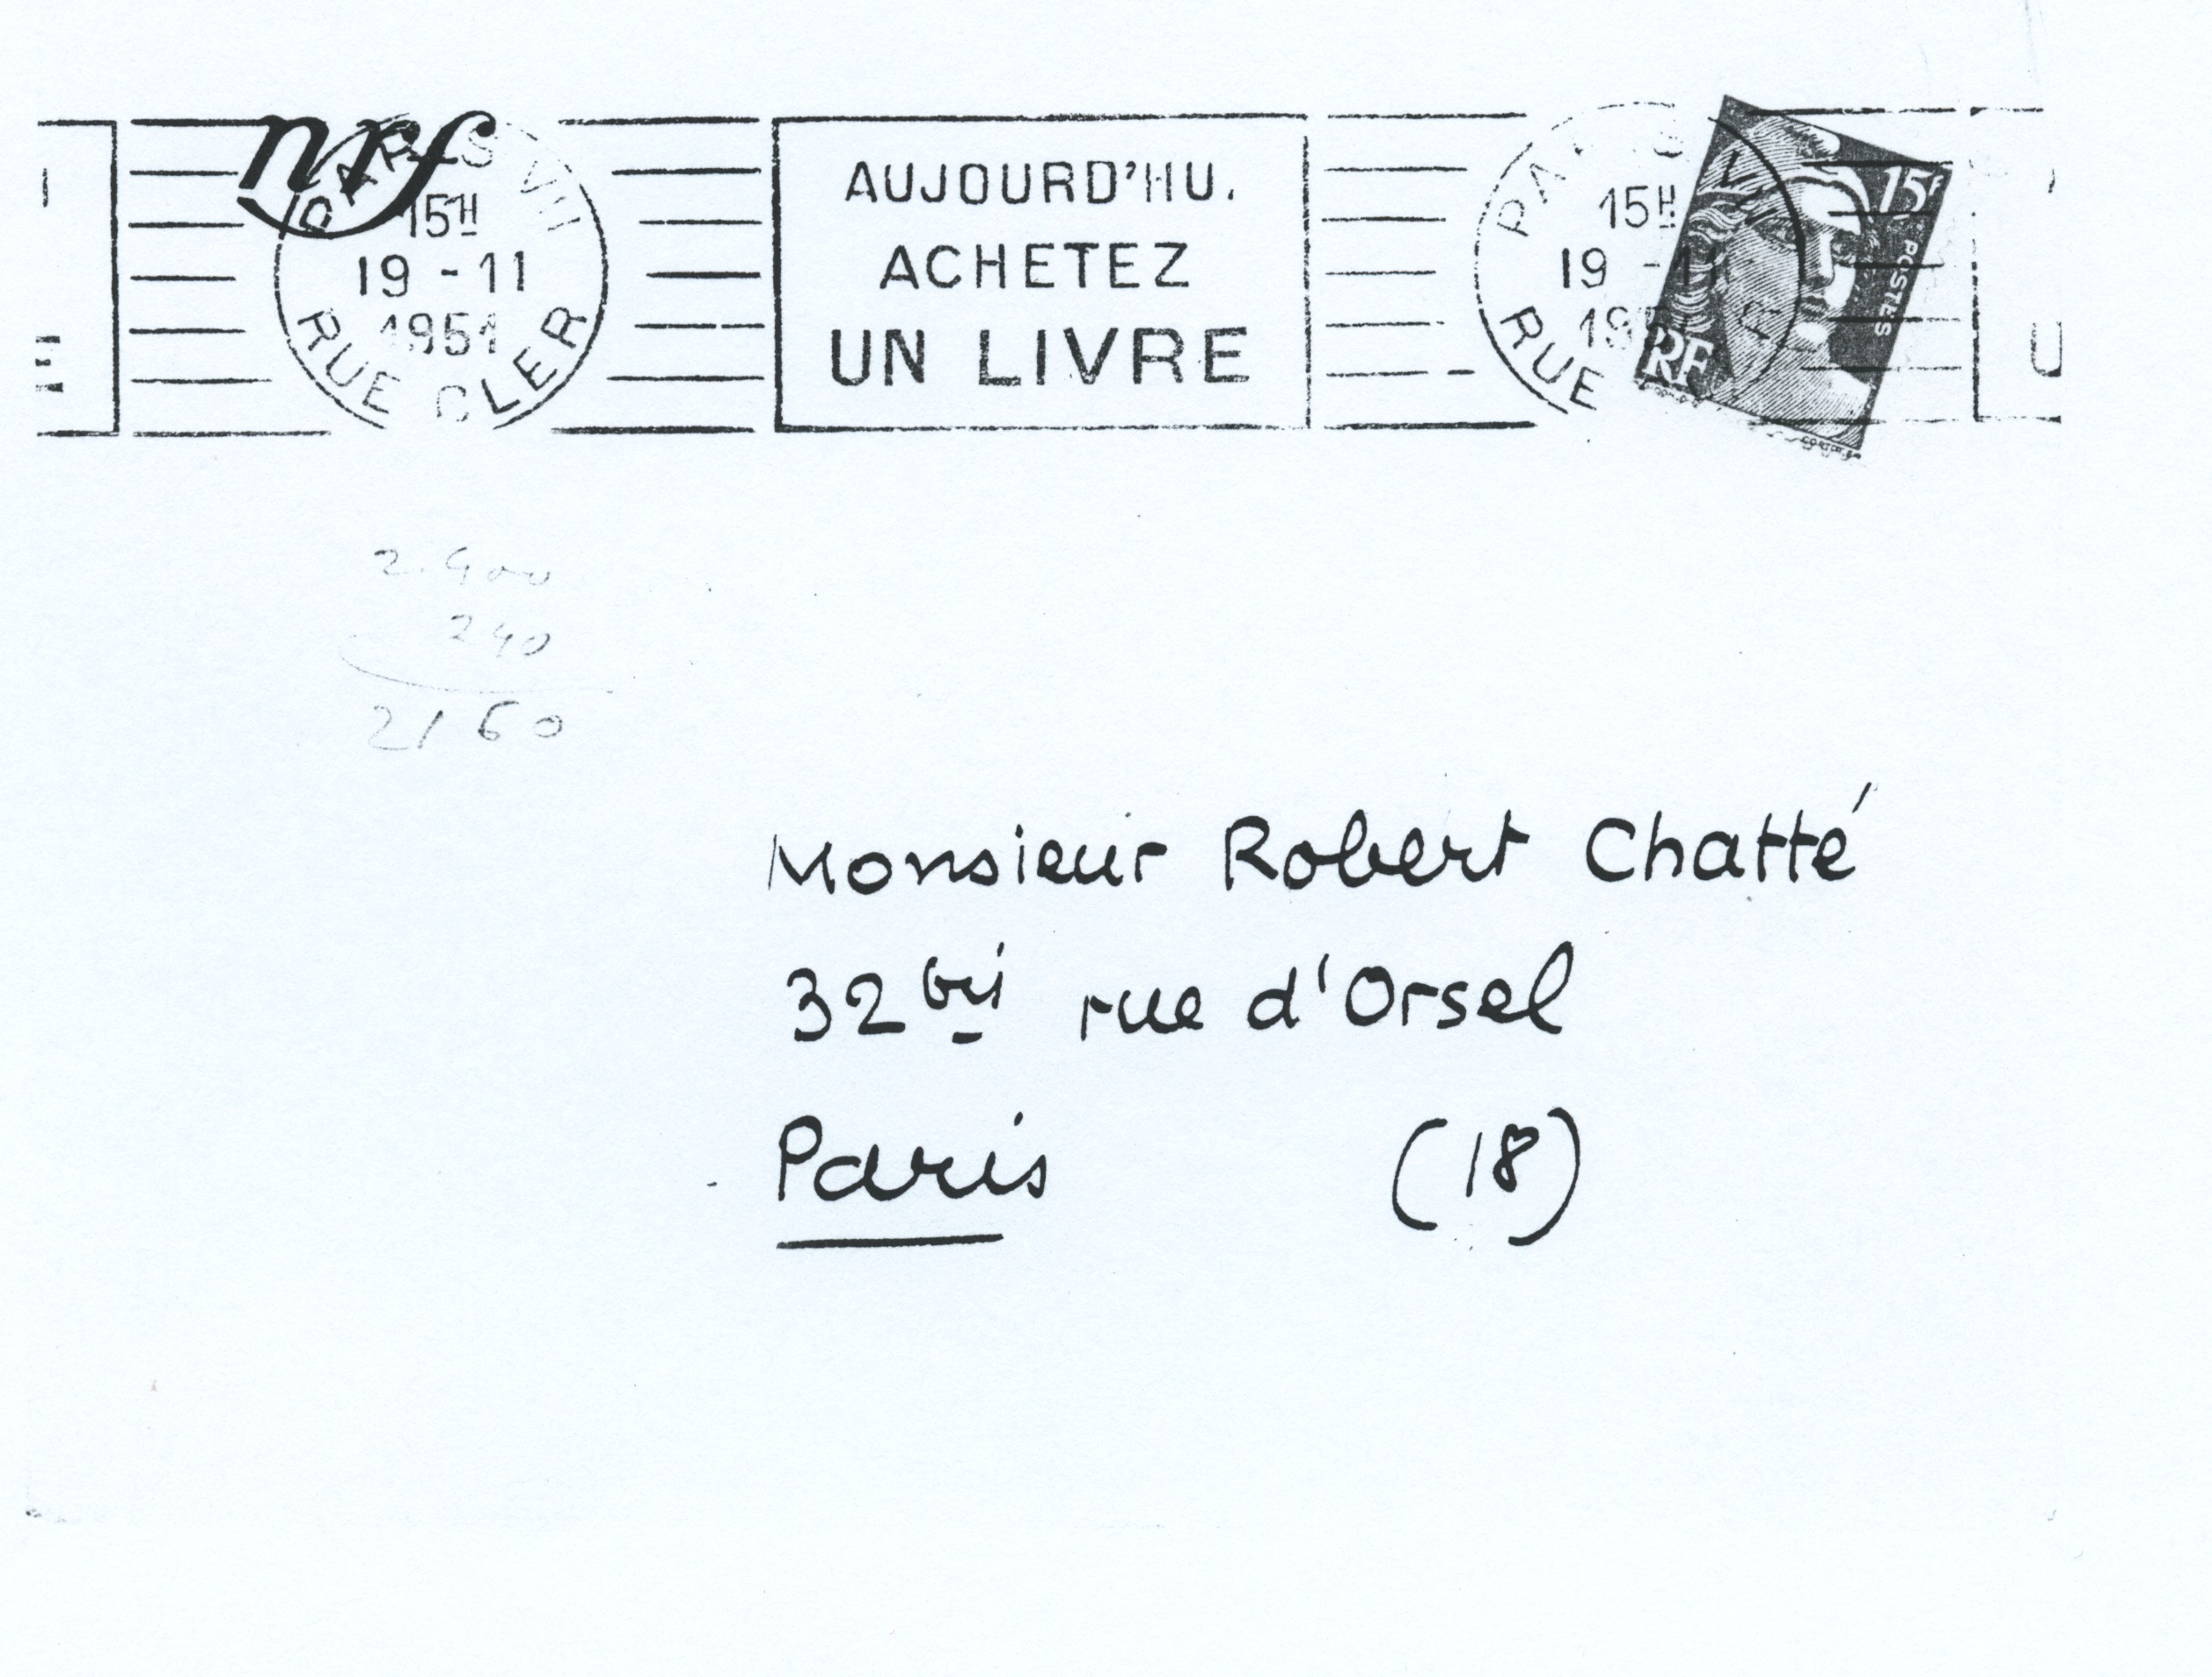 nrf
PARIS VII
15H
19 - 11
1951
RUE CLER
AUJOURD'HUI
ACHETEZ
UN LIVRE
PARIS VII
15H
19 - 11
1951
RUE CLER
15F
POSTES
RF
2.400
240
2160
Monsieur Robert Chatté
32 bis rue d'Orsel
Paris (18)